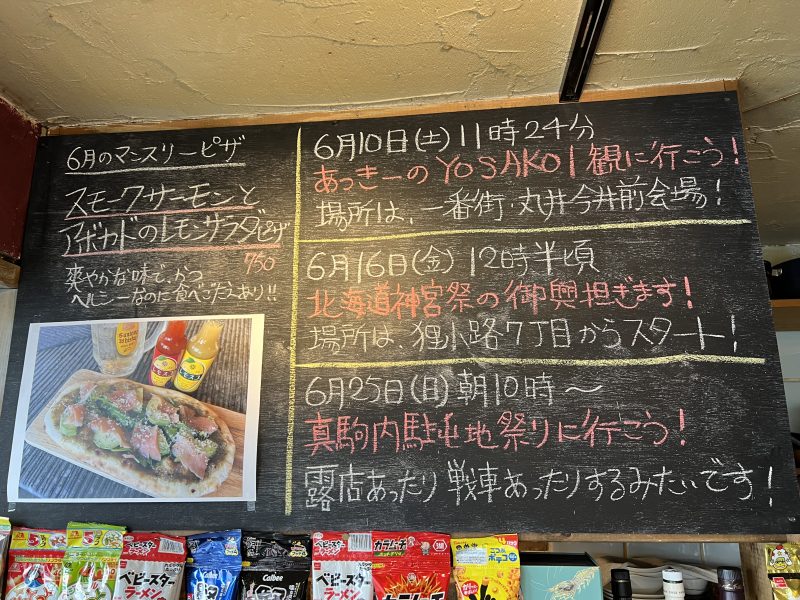 6月のマンスリーピザ
スモークサーモンと
アボカドのレモンサラダピザ
750
爽やかな味で、かつ
ヘルシーなのに食べごたえあり!!
6月10日(土)11時24分
あっきーのYOSAKOI観に行こう!
場所は、一番街・丸井今井前会場!
6月16日(金)12時半頃
北海道神宮祭の御輿担ぎます!
場所は、狸小路7丁目からスタート!
6月25日(日)朝10時〜
真駒内駐屯地祭りに行こう!
露店あったり戦車あったりするみたいです!
ベビースター
ラーメン
Calbee
Calbee
ベビースター
ラーメン
カラムーチョ
カラムーチョ
ポテコ